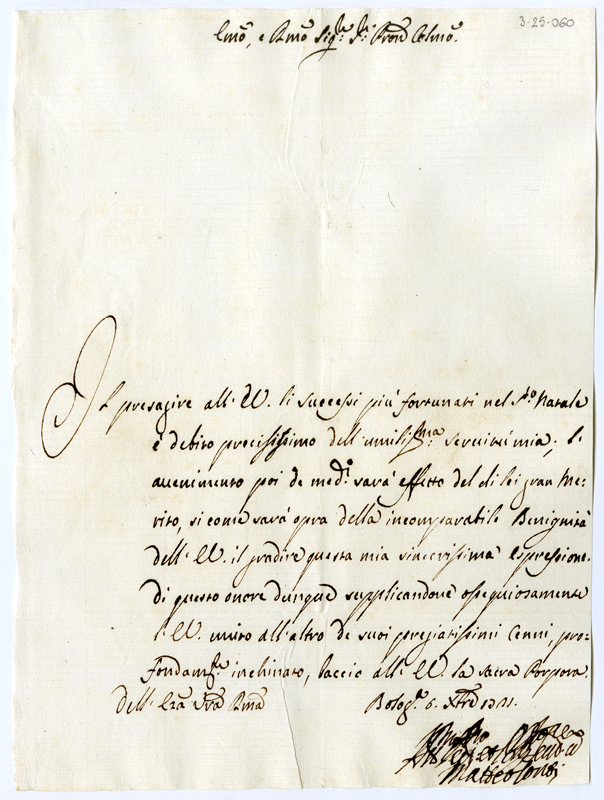 3-25-060
Emo, e Rmo Sigre Sr Pron Colmo.
Il presagire all' EV. li successi più fortunati nel Sto Natale
è debito precisissimo dell' umilissma servitù mia; l'
avvenimento poi de medi. sarà effetto del di lei gran Me-
rito, si come sarà opra della incomparabile Benignità
dell' EV. il gradire questa mia sincerissima espressione.
di questo onore dunque supplicandone ossequiosamente
l' EV. unito all' altro de suoi pregiatissimi Cenni, pro-
fondamte inchinato, baccio all' EV. la sacra Porpora.
dell' Eza Vra Rma Bologa 6. Xbre
Matteo Conti